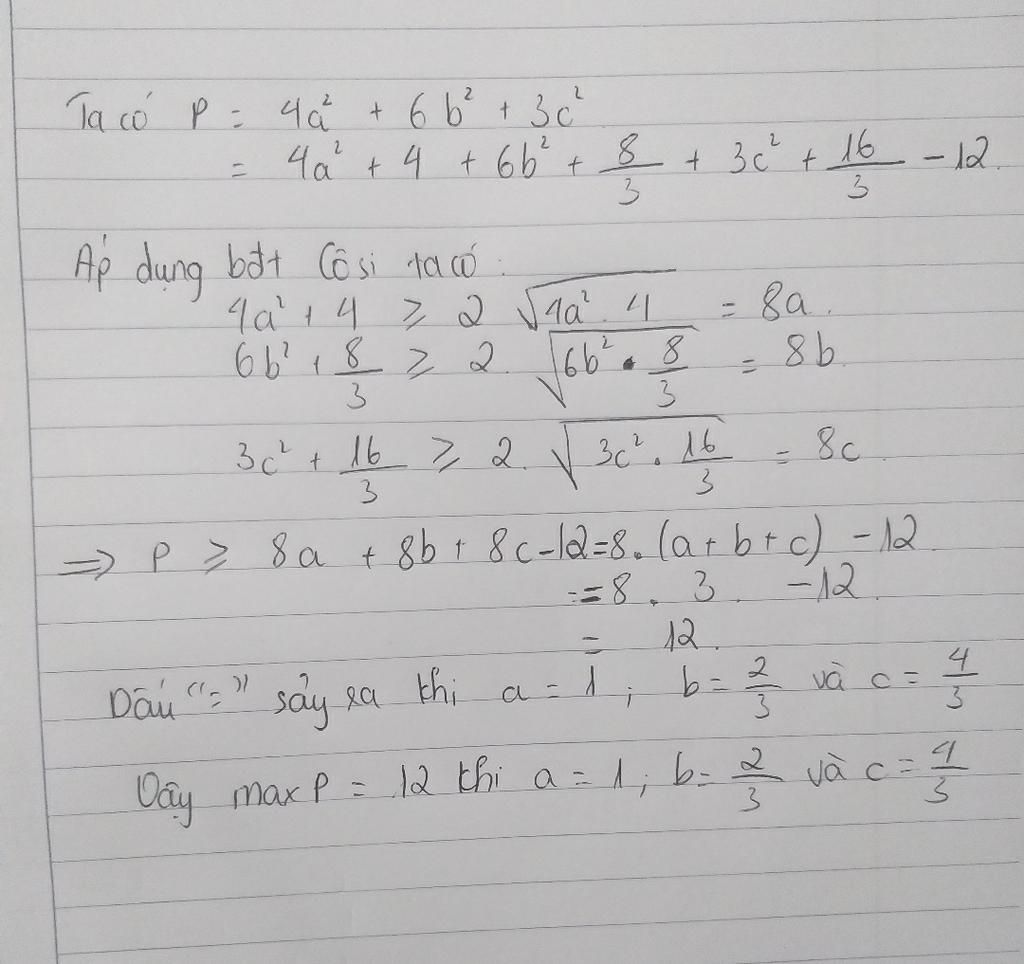 Ta có P = 4a² + 6b² + 3c²
= 4a² + 4 + 6b² + 8/3 + 3c² + 16/3 - 12.
Áp dụng bđt Côsi ta có:
4a² + 4 ≥ 2 √(4a². 4) = 8a.
6b² + 8/3 ≥ 2. √(6b² . 8/3) = 8b
3c² + 16/3 ≥ 2. √(3c² . 16/3) = 8c
=> P ≥ 8a + 8b + 8c - 12 = 8.(a + b + c) - 12
= 8 . 3. - 12.
= 12.
Dấu "=" sảy ra khi a = 1 ; b = 2/3 và c = 4/3
Vậy max P = 12 khi a = 1 ; b = 2/3 và c = 4/3